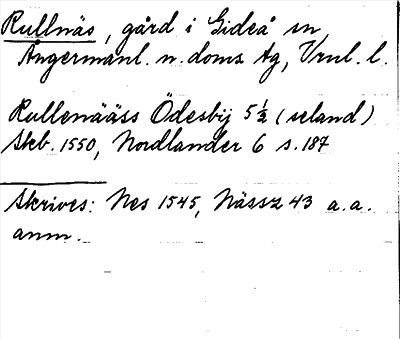 Rullnäs, gård i Gideå sn,
Ångermanl. n. doms ag, Vrnl. l.
Rullenääss Ödesbij 5 ½ (seland)
Skb. 1550, Nordlander 6 s. 187
Skrives: Nes 1545, Nässz 43 a.a.
anm.